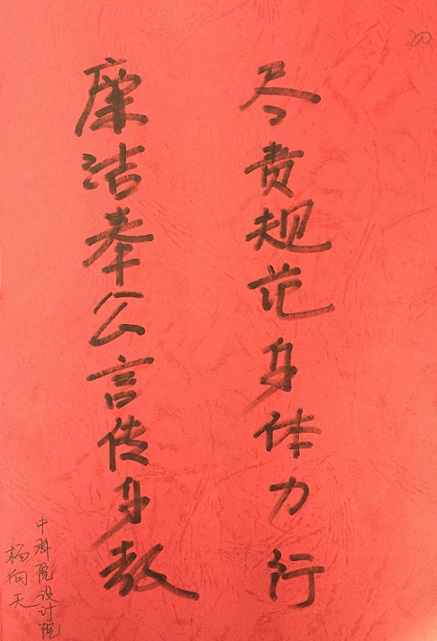 尽责规范身体力行
廉洁奉公言传身教
中科院设计院
杨向天